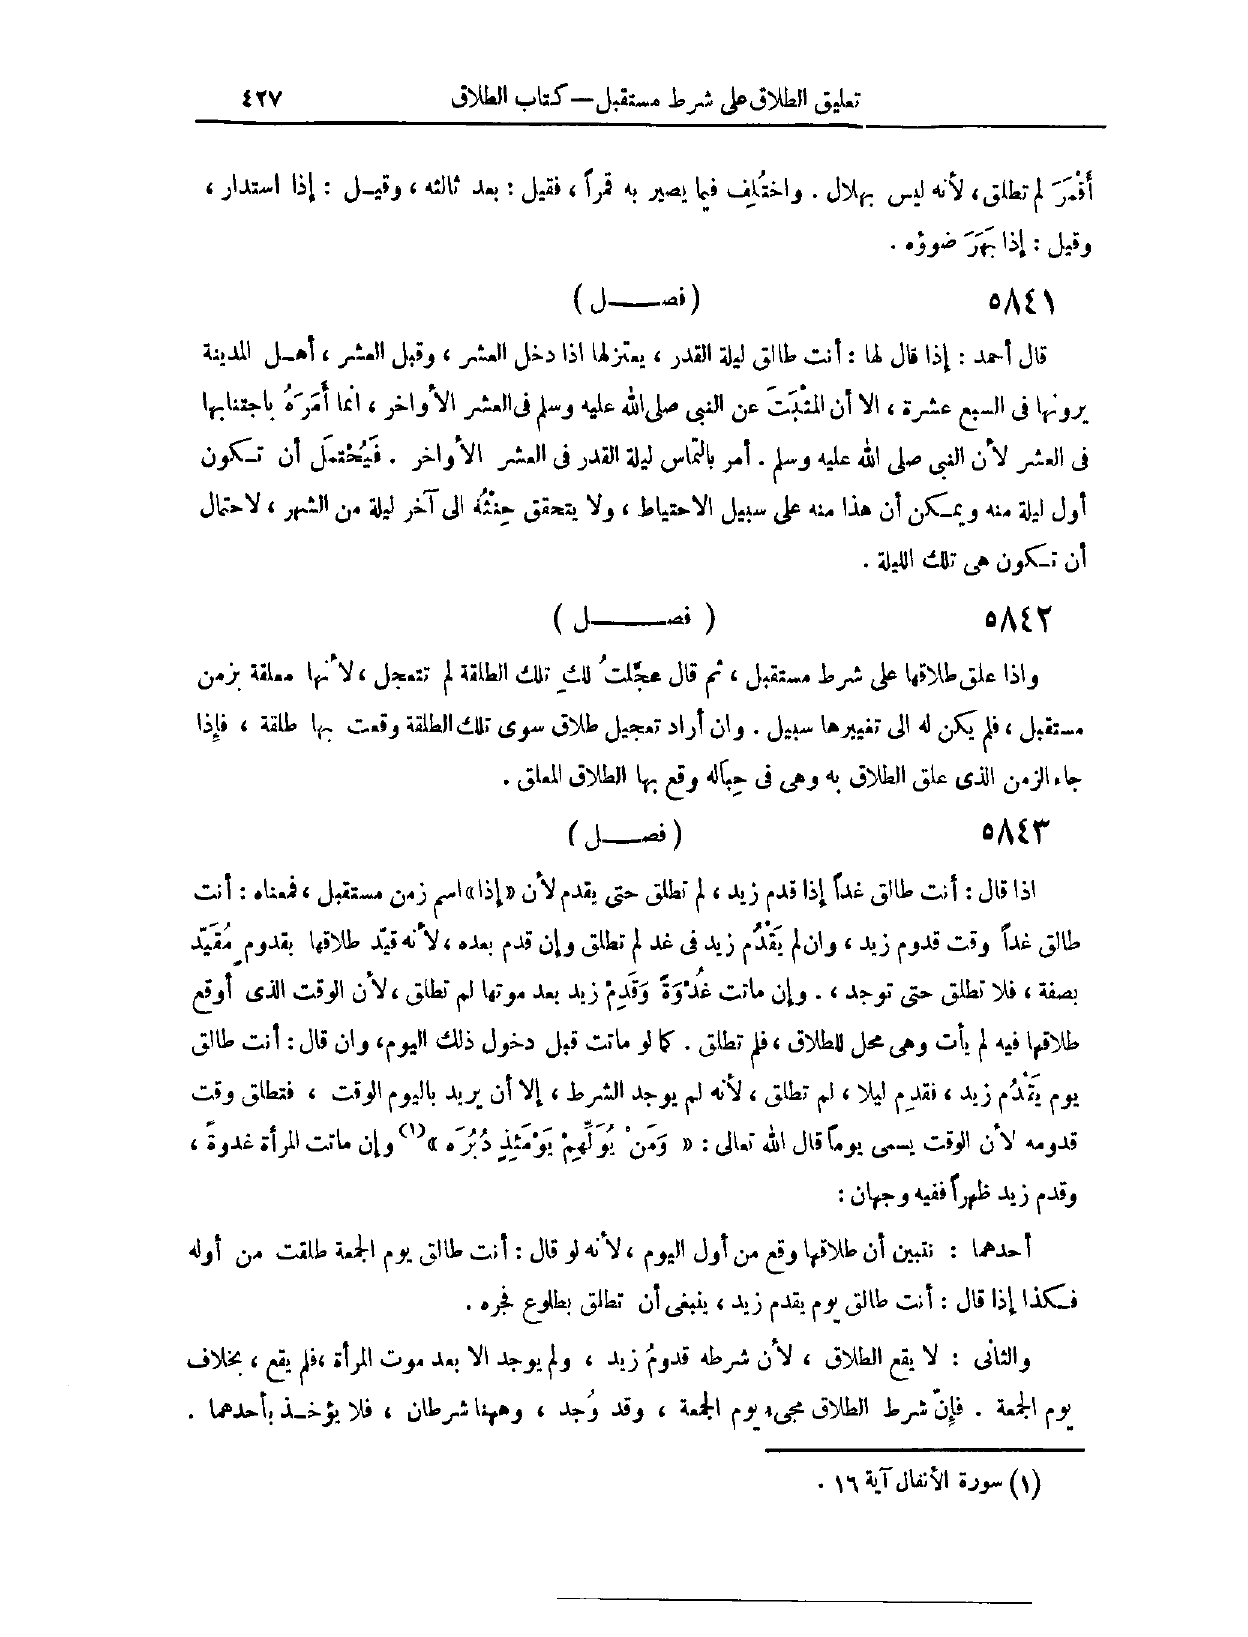 تعليق الطلاق على شرط مستقبل – كتاب الطلاق ٤٢٧
أَقْمَرَ لم تطلق، لأنه ليس بهلال . واختُلِف فيما يصير به قمراً ، فقيل : بعد ثالثه ، وقيــل : إذا استدار ،
وقيل : إذا بَهَرَ ضوؤه .
٥٨٤١ ( فصــــل )
قال أحمد : إذا قال لها : أنت طالق ليلة القدر ، يعتزلها اذا دخل العشر ، وقبل العشر ، أهــل المدينة
يرونها فى السبع عشرة ، الا أن المثْبَتَ عن النبى صلى الله عليه وسلم فى العشر الأواخر ، انما أَمَرَهُ باجتنابها
فى العشر لأن النبى صلى الله عليه وسلم . أمر بالتماس ليلة القدر فى العشر الأواخر . فَيُحْتمل أن تـكون
أول ليلة منه ويمـكن أن هذا منه على سبيل الاحتياط ، ولا يتحقق حِنْثُه الى آخر ليلة من الشهر ، لاحتمال
أن تـكون هى تلك الليلة .
٥٨٤٢ ( فصــــل )
واذا علق طلاقها على شرط مستقبل ، ثم قال عجّلتُ لكِ تلك الطلقة لم تتعجل ، لأنها معلقة بزمن
مستقبل ، فلم يكن له الى تغييرها سبيل . وان أراد تعجيل طلاق سوى تلك الطلقة وقعت بها طلقة ، فإذا
جاء الزمن الذى علق الطلاق به وهى فى حِباله وقع بها الطلاق المعلق .
٥٨٤٣ ( فصــــل )
اذا قال : أنت طالق غداً إذا قدم زيد ، لم تطلق حتى يقدم لأن «إذا» اسم زمن مستقبل ، فمعناه : أنت
طالق غداً وقت قدوم زيد ، وان لم يَقْدُم زيد فى غد لم تطلق وإن قدم بعده ، لأنه قيّد طلاقها بقدوم مُقَيّد
بصفة ، فلا تطلق حتى توجد ، . وإن ماتت غُدْوَةً وَقَدِمَ زيد بعد موتها لم تطلق ، لأن الوقت الذى أوقع
طلاقها فيه لم يأت وهى محل للطلاق ، فلم تطلق . كما لو ماتت قبل دخول ذلك اليوم، وان قال : أنت طالق
يوم يَقْدُم زيد ، فقدِم ليلا ، لم تطلق ، لأنه لم يوجد الشرط ، إلا أن يريد باليوم الوقت ، فتطلق وقت
قدومه لأن الوقت يسمى يوماً قال الله تعالى : « وَمَنْ يُوَلِّهِمْ يَوْمَئِذٍ دُبُرَه »(١) وإن ماتت المرأة غدوةً ،
وقدم زيد ظهراً ففيه وجهان :
أحدهما : نتبين أن طلاقها وقع من أول اليوم ، لأنه لو قال : أنت طالق يوم الجمعة طلقت من أوله
فـكذا إذا قال : أنت طالق يوم يقدم زيد ، ينبغى أن تطلق بطلوع فجره .
والثانى : لا يقع الطلاق ، لأن شرطه قدومُ زيد ، ولم يوجد الا بعد موت المرأة ،فلم يقع ، بخلاف
يوم الجمعة . فإنّ شرط الطلاق مجىء يوم الجمعة ، وقد وُجد ، وههنا شرطان ، فلا يؤخــذ بأحدهما .
(١) سورة الأنفال آية ١٦ .